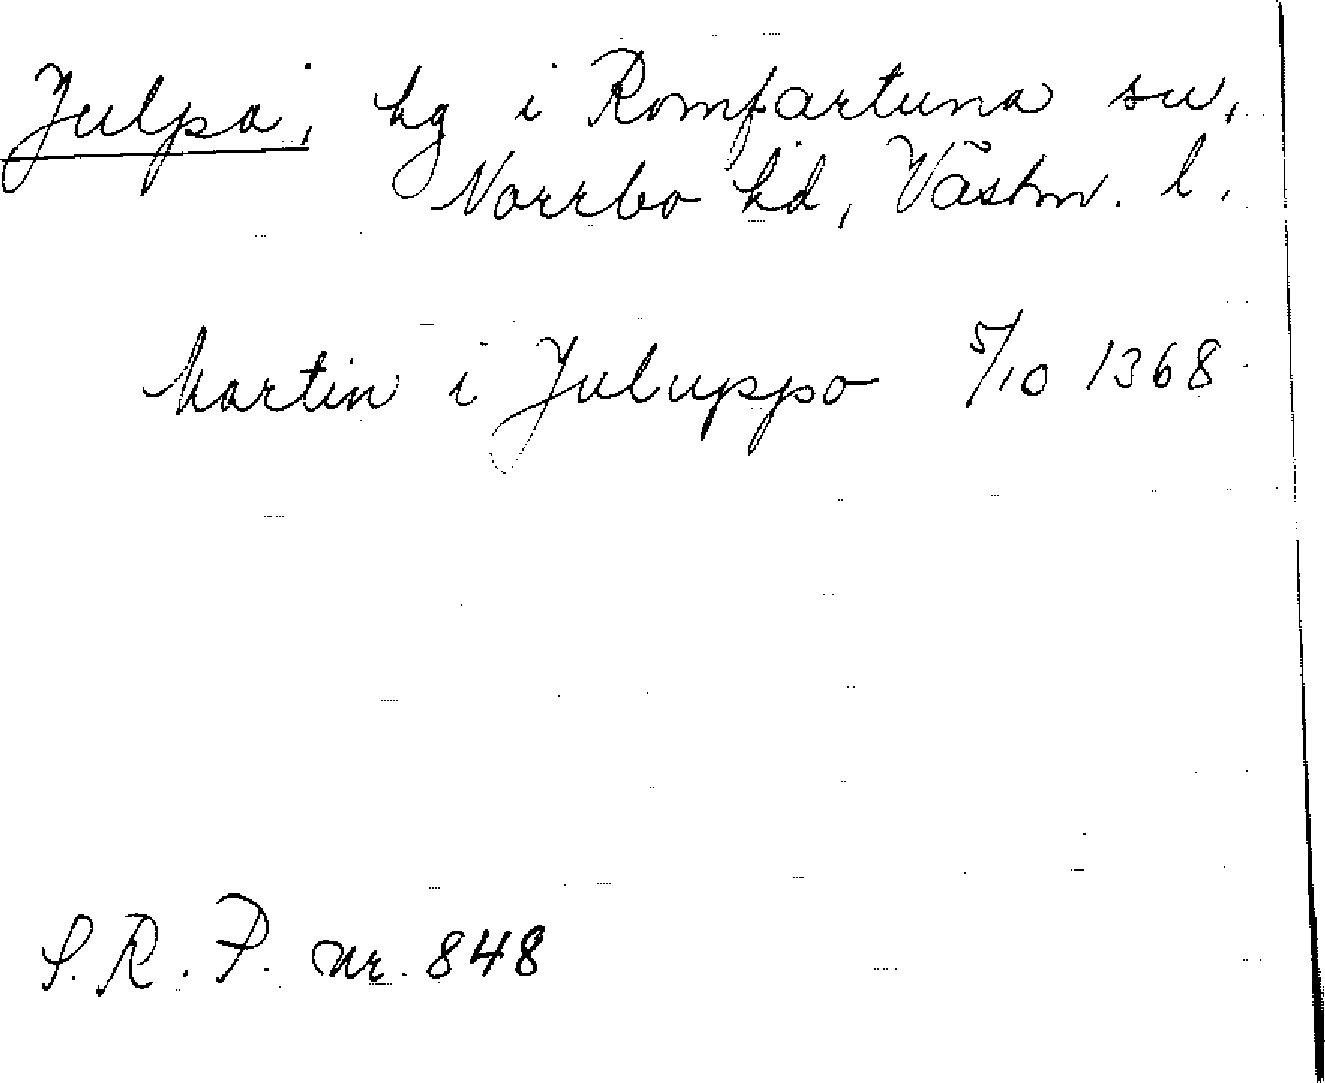 Julpa, hg i Romfartuna sn,
Norrbo hd, Västm. l.
Martin i Juluppo 5/10 1368
S.R.P. nr. 848